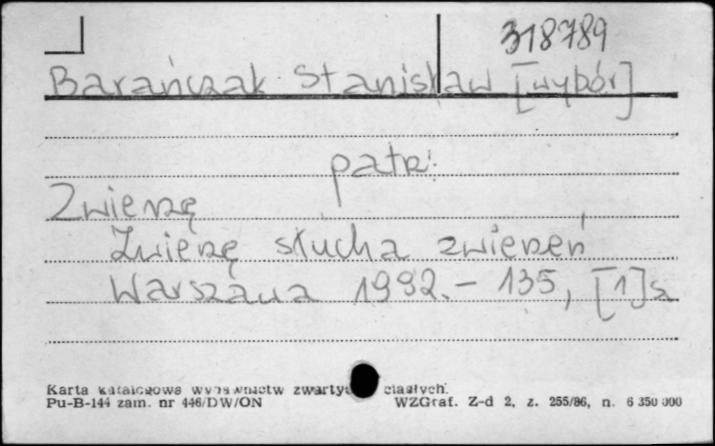 318789
Barańczak Stanisław [wybór]
patrz:
Zwierzę
Zwierzę słucha zwierzeń
Warszawa 1992.- 135, [1] s
Karta katalogowa wydawnictw zwartych ciągłych.
Pu-B-144 zam. nr 446/DW/ON WZGraf. Z-d 2, z. 255/86, n. 6 350 000